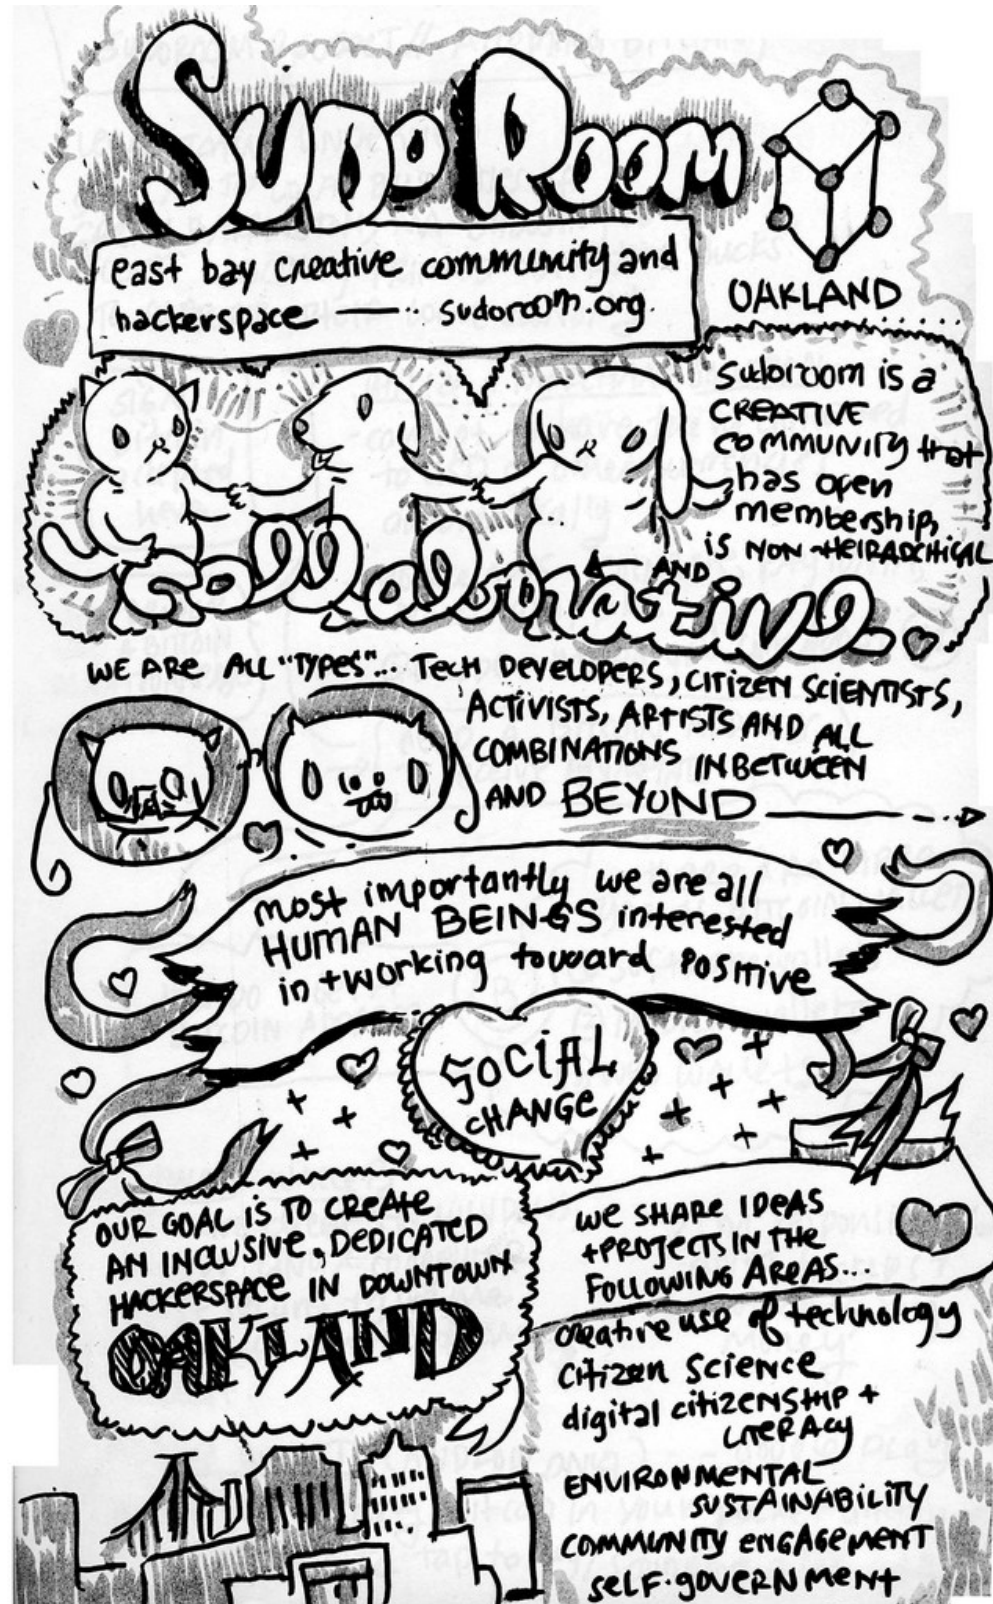 SUDO ROOM
east bay creative community and
hackerspace —·· sudoroom.org.
OAKLAND
Sudoroom is a
CREATIVE
COMMUNITY that
has open
membership,
is NON-HEIRADCHICAL
AND
Collaborative.
WE ARE ALL "TYPES"... TECH DEVELOPERS, CITIZEN SCIENTISTS,
ACTIVISTS, ARTISTS AND ALL
COMBINATIONS INBETWEEN
AND BEYOND
most importantly we are all
HUMAN BEINGS interested
in + working toward POSITIVE
SOCIAL
CHANGE
OUR GOAL IS TO CREATE
AN INCLUSIVE, DEDICATED
HACKERSPACE IN DOWNTOWN
OAKLAND
WE SHARE IDEAS
+ PROJECTS IN THE
FOLLOWING AREAS...
creative use of technology
Citizen Science
digital citizenship +
LITERACY
ENVIRONMENTAL
SUSTAINABILITY
COMMUNITY ENGAGEMENT
SELF-GOVERNMENT